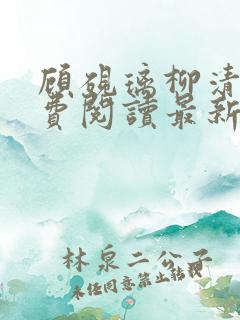 顧硯璃柳清
費閱讀最新
林泉二公子
未任同意禁止轉載